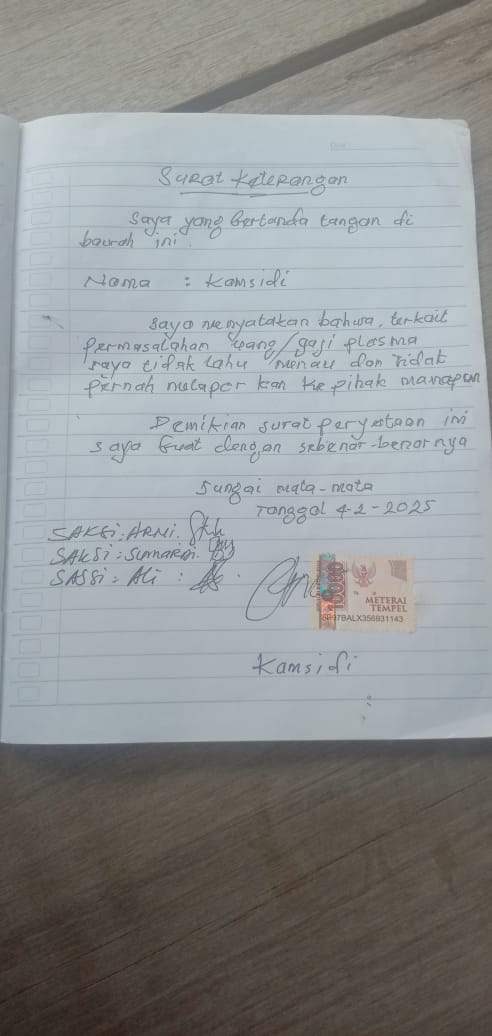 Surat Keterangan
Saya yang bertanda tangan di
bawah ini.
Nama : Kamsidi
Saya menyatakan bahwa, terkait
permasalahan uang/gaji plasma
saya tidak tahu menau dan tidak
pernah melapor kan ke pihak manapun
Demikian surat peryataan ini
saya buat dengan sebenar-benarnya
Sungai mata-mata
Tanggal 4-2-2025
SAKSi: ARNi.
SAKSi: Sumarin.
SASSi: Ali :
10000
METERAI
TEMPEL
97BALX356931143
Kamsidi